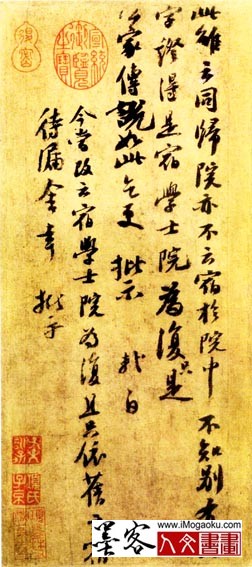 此雖云同歸院亦不云宿於院中 不知別有
字證得是宿學士院為復只是
公家傳說如此乞更 批示 白
今當改云宿學士院為復且只依舊云宿
待漏舍幸 批示
www.iMogaoku.com
墨客
人文書畫